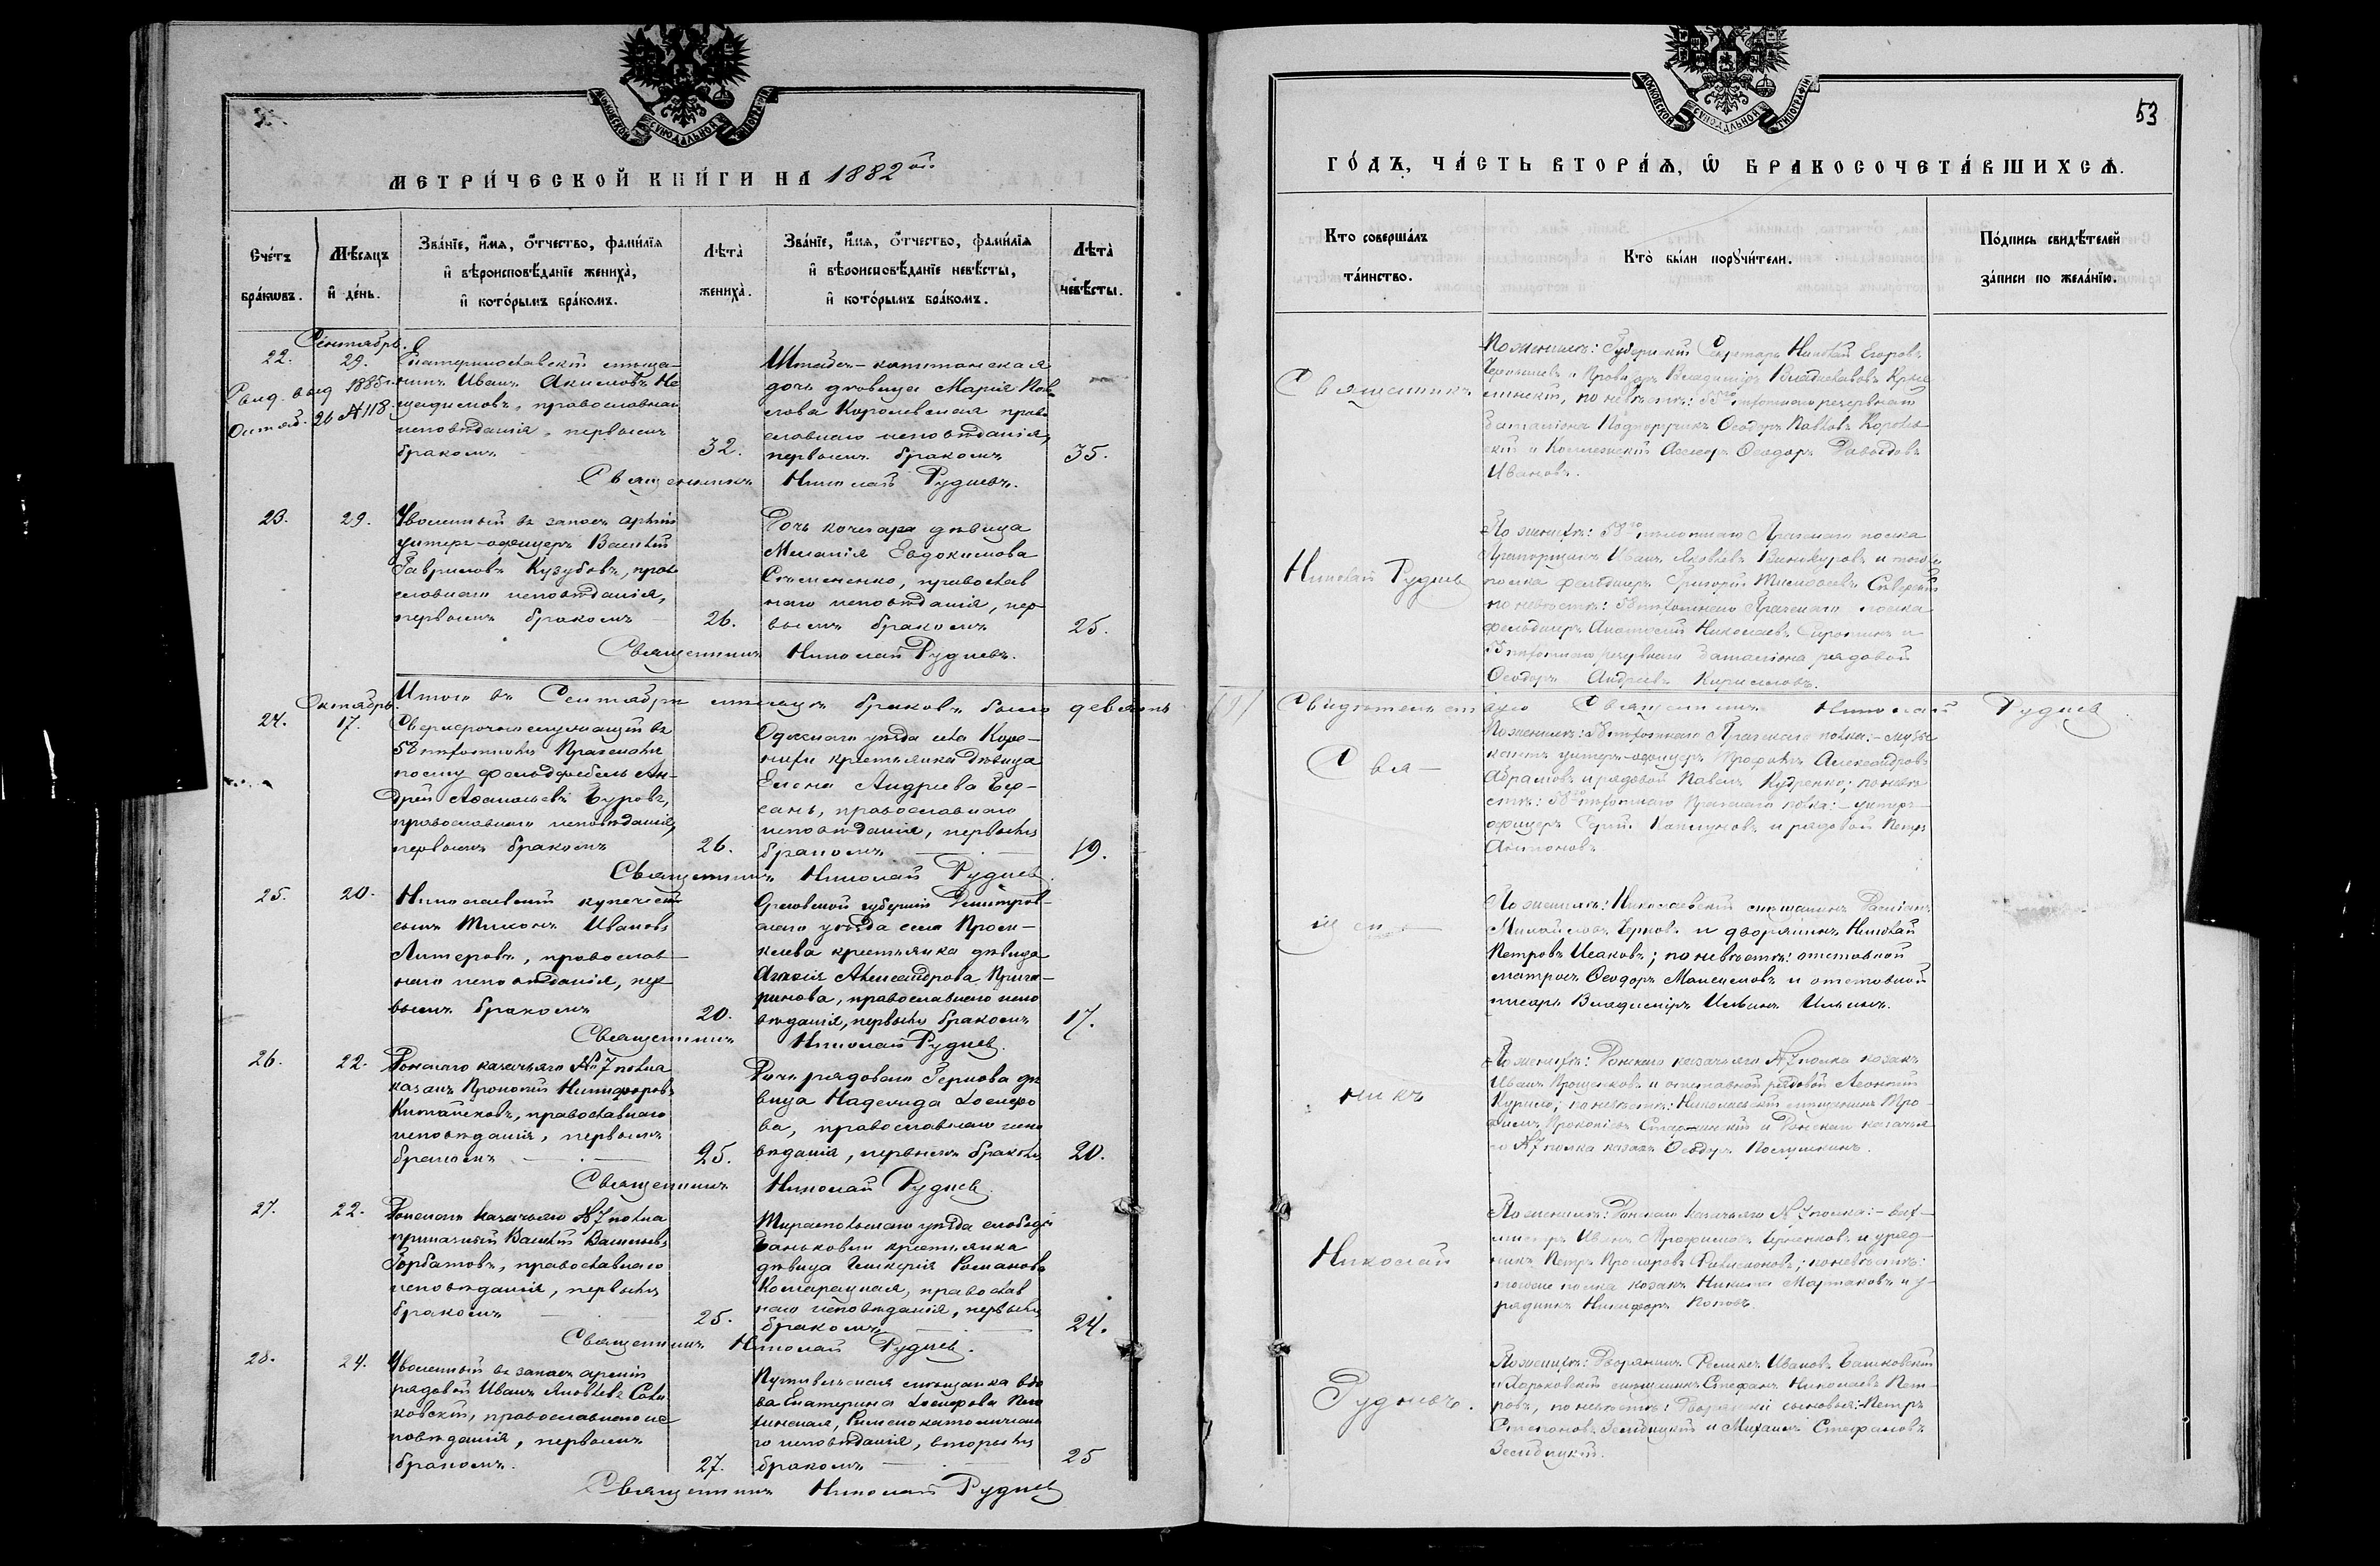 МЕТРИ́ЧЕСКОЙ КНИ́ГИ НА 1882ой
Сче́тъ бра́кѡвъ.
Мѣ́сяцъ и҆ де́нь.
Зва́нїе, и҆́мѧ, ѻ҆́тчество, фами́лїѧ
и҆ вѣроисповѣ́данїе жениха̀,
и҆ кото́рымъ бра́комъ.
Лѣ́та жениха̀.
Зва́нїе, и҆́мѧ, ѻ҆́тчество, фами́лїѧ
и҆ вѣроисповѣ́данїе невѣ́сты,
и҆ кото́рымъ бра́комъ.
Лѣ́та невѣ́сты.
Сентябрь.
22.
29.
Екатеринославскій мѣща-
нинъ Иванъ Акимовъ Не
православнаго
исповѣданія, первымъ
бракомъ
32.
Выд. 1885 г.
Октяб. 26 № 118.
Штабсъ-капитанская
дочь дѣвица Марія Пав-
лова Королевская право-
славнаго исповѣданія,
первымъ бракомъ
35.
Священникъ Николай Рудневъ.
23.
29.
Уволенный въ запасъ арміи
унтеръ-офицеръ Василій
Гавриловъ Кузубовъ, право-
славнаго исповѣданія,
первымъ бракомъ
26.
Дочь кочегара дѣвица
Меланія Евдокимова
Стеценко, православ
наго исповѣданія, пер-
вымъ бракомъ
25.
Священникъ Николай Рудневъ.
Итого въ Сентябрѣ мѣсяцѣ браковъ было девять
Октябрь.
24.
17.
Сверхсрочнослужащій въ
58 пѣхотномъ Пражскомъ
полку фельдфебель Ан-
дрей Аѳанасьевъ Буровъ,
православнаго исповѣданія,
первымъ бракомъ
26.
Одесскаго уѣзда села Коре-
нихи крестьянка дѣвица
Елена Андреева Бер-
сань, православнаго
исповѣданія, первымъ
бракомъ
19.
Священникъ Николай Рудневъ
25.
20.
Николаевскій купеческій
сынъ Тихонъ Ивановъ
Литеровъ, православ-
наго исповѣданія, пер-
вымъ бракомъ
20.
Орловской губерніи Дмитров-
скаго уѣзда села
крестьянка дѣвица
Александрова
православнаго испо
вѣданія, первымъ бракомъ
17.
Священникъ Николай Рудневъ.
26.
22.
Донскаго казачьяго № 7 полка
казакъ Прокопій Никифоровъ
Китайсковъ, православнаго
исповѣданія, первымъ
бракомъ
25.
Дочь рядоваго дѣ
вица Надежда Іосифо
ва, православнаго испо
вѣданія, первымъ бракомъ
20.
Священникъ Николай Рудневъ.
27.
22.
Донскаго казачьяго № 7 полка
приказный Василій Васильевъ
Горбатовъ, православнаго
исповѣданія, первымъ
бракомъ
25.
Тираспольскаго уѣзда слободы
крестьянка
дѣвица Гликерія Романова
православ
наго исповѣданія, первымъ
бракомъ
24.
Священникъ Николай Рудневъ.
28.
24.
Уволенный въ запасъ арміи
рядовой Иванъ Яковлевъ
православнаго ис
повѣданія, первымъ
бракомъ.
27.
Путивльская мѣщанка вдо
ва Екатерина Іосифова
Римскокатолическа
го исповѣданія, вторымъ
бракомъ
25
Священникъ Николай Рудневъ
53
ГО́ДЪ, ЧА́СТЬ ВТОРА́Ѧ, Ѽ БРАКОСОЧЕТА́ВШИХСѦ.
Кто соверша́лъ
та́инство.
Кто̀ бы́ли порꙋчи́тели.
По́дпись свидѣ́телей
за́писи по жела́нїю.
Священникъ
По женихѣ: Губернскій Секретарь Николай Егоровъ
и Провизоръ Владиміръ Владиславовъ
по невѣстѣ: 55го пѣхотнаго резервнаго
баталіона Подпоручикъ Ѳеодоръ Павловъ Королев-
скій и Коллежскій Асесоръ Ѳеодоръ Давыдовъ
Ивановъ.
Николай Рудневъ
По женихѣ: 58го пѣхотнаго Пражскаго полка
Прапорщикъ Иванъ Яковлевъ Винокуровъ и того же
полка фельдшеръ Григорій Тимоѳеевъ Сѣверскій
по невѣстѣ: 58 пѣхотнаго Пражскаго полка
фельдшеръ Анатолій Николаевъ Сиротинъ и
55 пѣхотнаго резервнаго баталіона рядовой
Ѳеодоръ Андреевъ Кирилловъ.
(9) Свидѣтельствую Священникъ Николай Рудневъ
Свя-
По женихѣ: 58 пѣхотнаго Пражскаго полка: музы-
кантъ унтеръ-офицеръ Александровъ
Абрамовъ и рядовой Павелъ Кудренко; по невѣ
стѣ: 58го пѣхотнаго Пражскаго полка: унтеръ-
офицеръ Сергій и рядовой Петръ
Антоновъ
щен-
По женихѣ: Николаевскій мѣщанинъ
Михайловъ Черновъ и дворянинъ Николай
Петровъ Исаковъ; по невѣстѣ: отставной
матросъ Ѳеодоръ Максимовъ и отставной
писарь Владиміръ Ильинъ Ильинъ.
никъ
По женихѣ: Донскаго казачьяго № 7 полка казакъ
Иванъ Прощенковъ и отставной рядовой Леонтій
Курило; по невѣстѣ: Николаевскій мѣщанинъ Тро-
фимъ Прокопіевъ и Донскаго казачья
го № 7 полка казакъ Ѳеодоръ
Николай
По женихѣ: Донскаго казачьяго № 7 полка: вах-
мистръ Иванъ Трофимовъ и уряд-
никъ Петръ по невѣстѣ:
тогоже полка казакъ Никита Мартаковъ и у-
рядникъ Никифоръ Поповъ.
Рудневъ.
По женихѣ: Дворянинъ Феликсъ Ивановъ
и Харьковскій мѣщанинъ Стефанъ Николаевъ Пет-
ровъ, по невѣстѣ: Дворянскіе сыновья: Петръ
Степановъ и Михаилъ Стефановъ